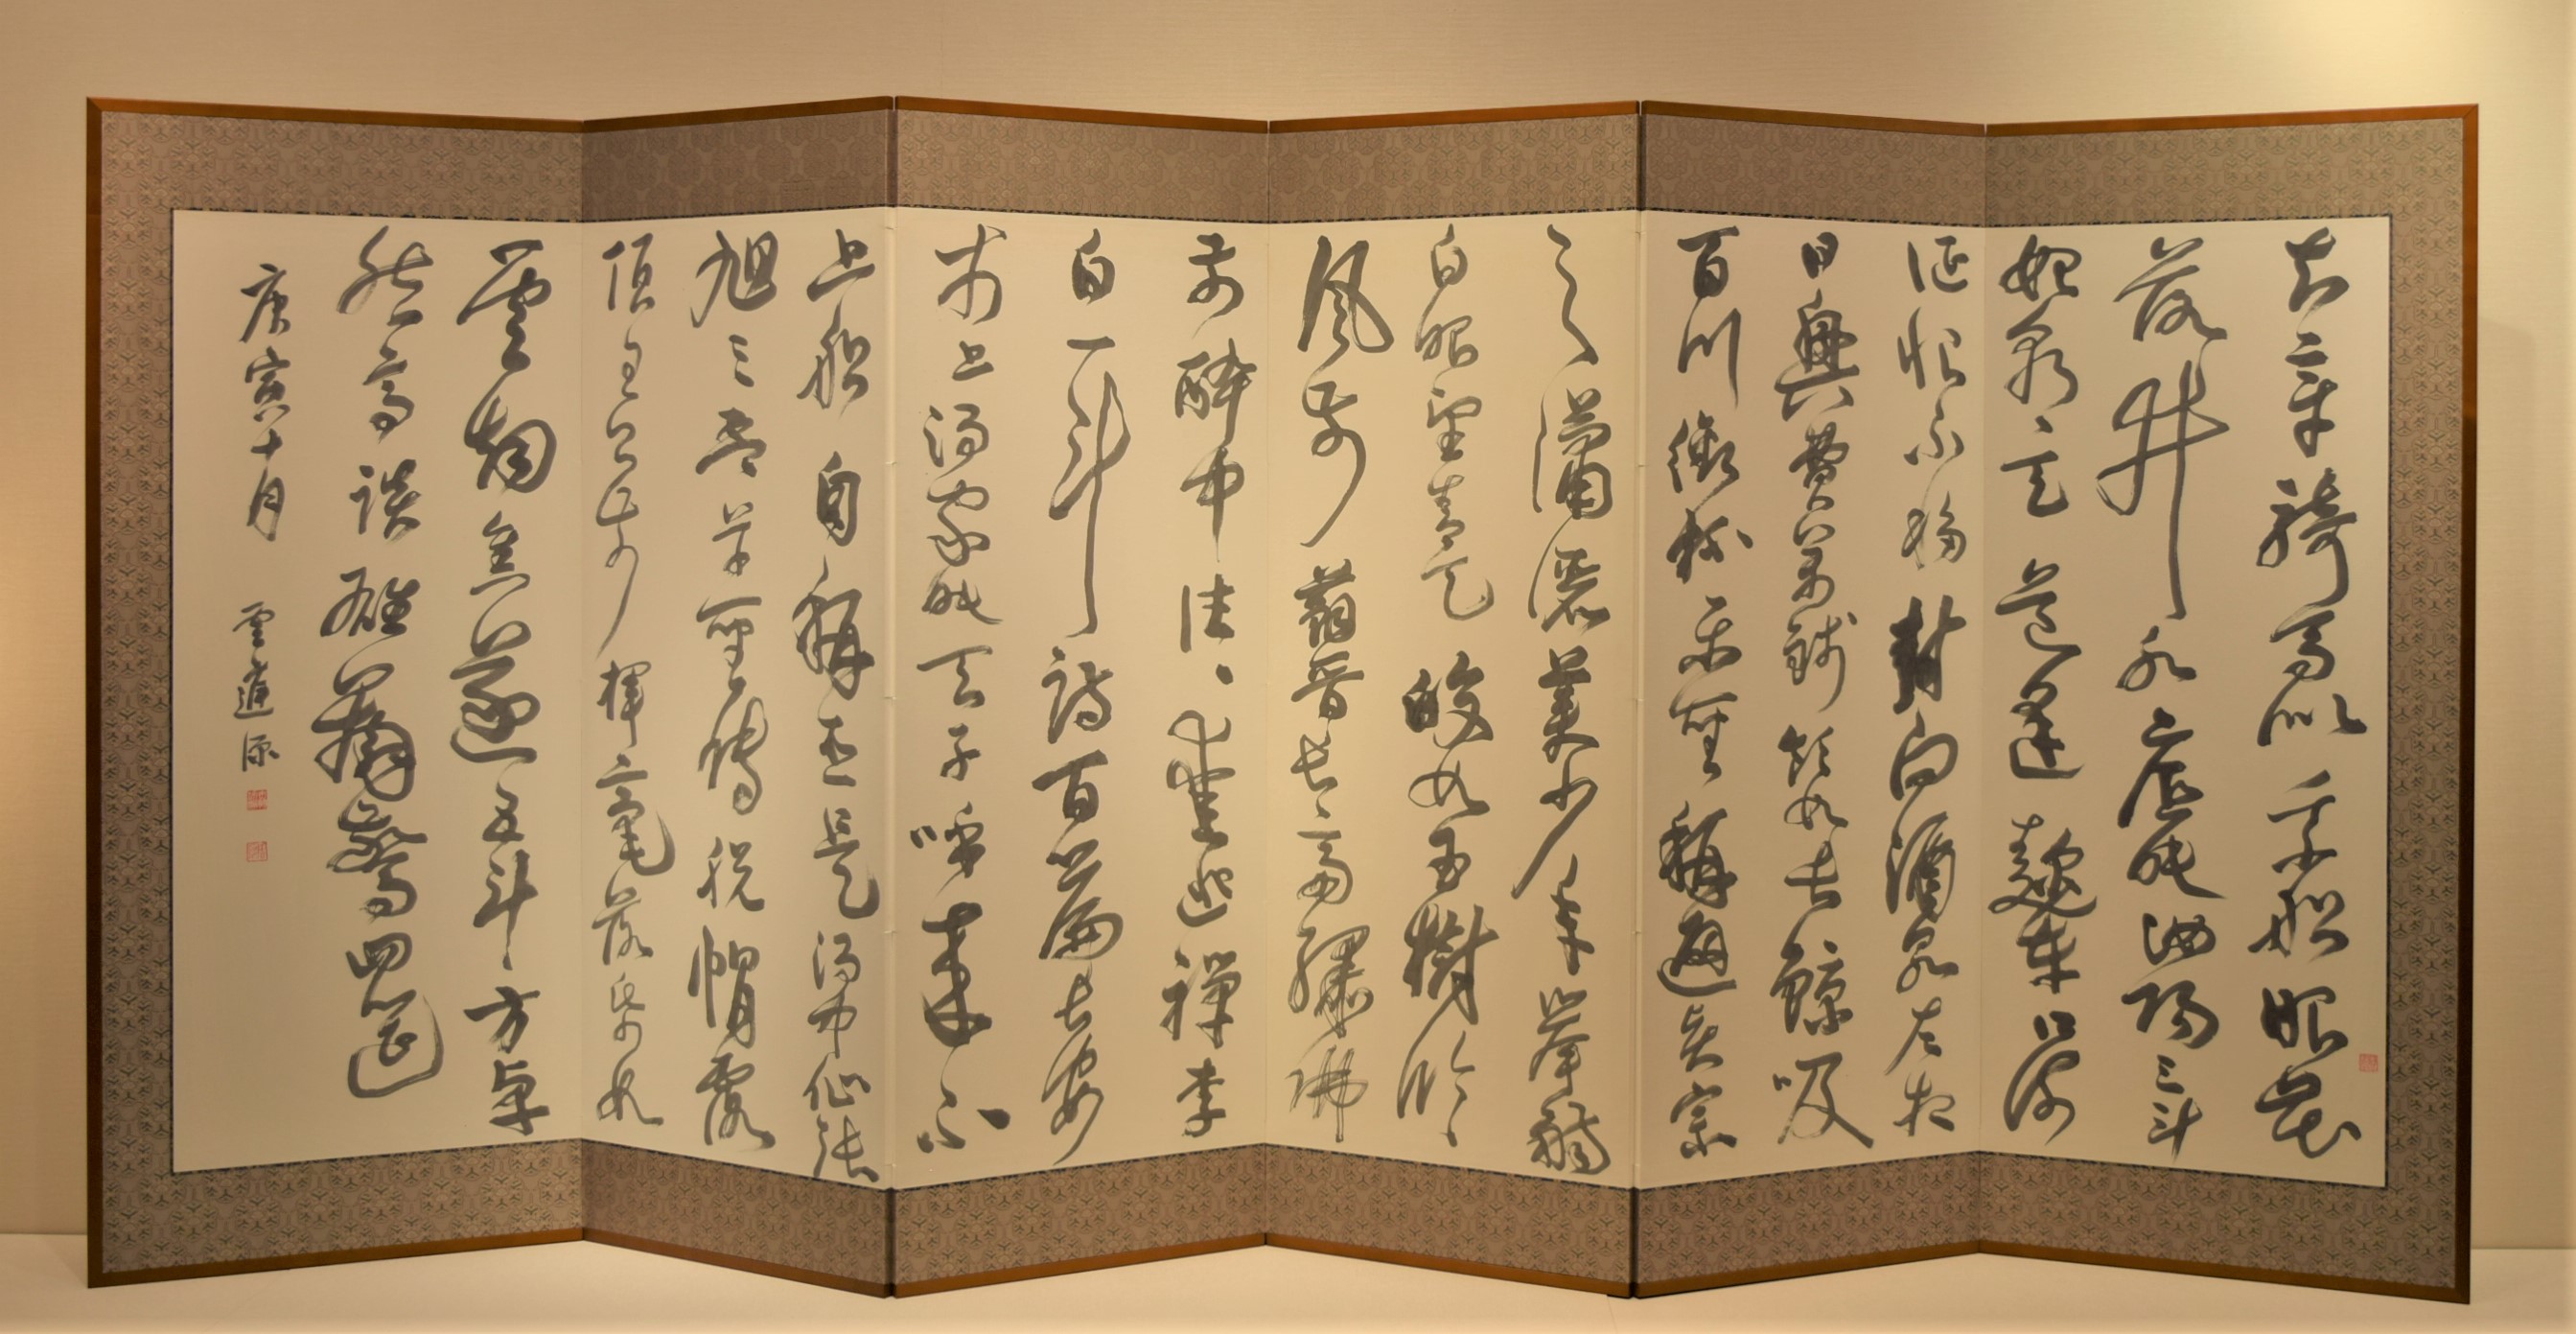 知章騎馬似乘船眼花
落井水底眠汝陽三斗
始朝天道逢麹車口流
涎恨不移封向酒泉左相
日興費萬銭飲如長鯨吸
百川銜杯樂聖稱避賢宗
之瀟灑美少年擧觴
白眼望青天皎如玉樹臨
風前蘇晉長齋繡佛
前醉中往々愛逃禪李
白一斗詩百篇長安
市上酒家眠天子呼来不
上船自稱臣是酒中仙張
旭三盃草聖傳脱帽露
頂王公前揮毫落紙如
雲煙焦遂五斗方卓
然高談雄辯驚四筵
庚寅十月